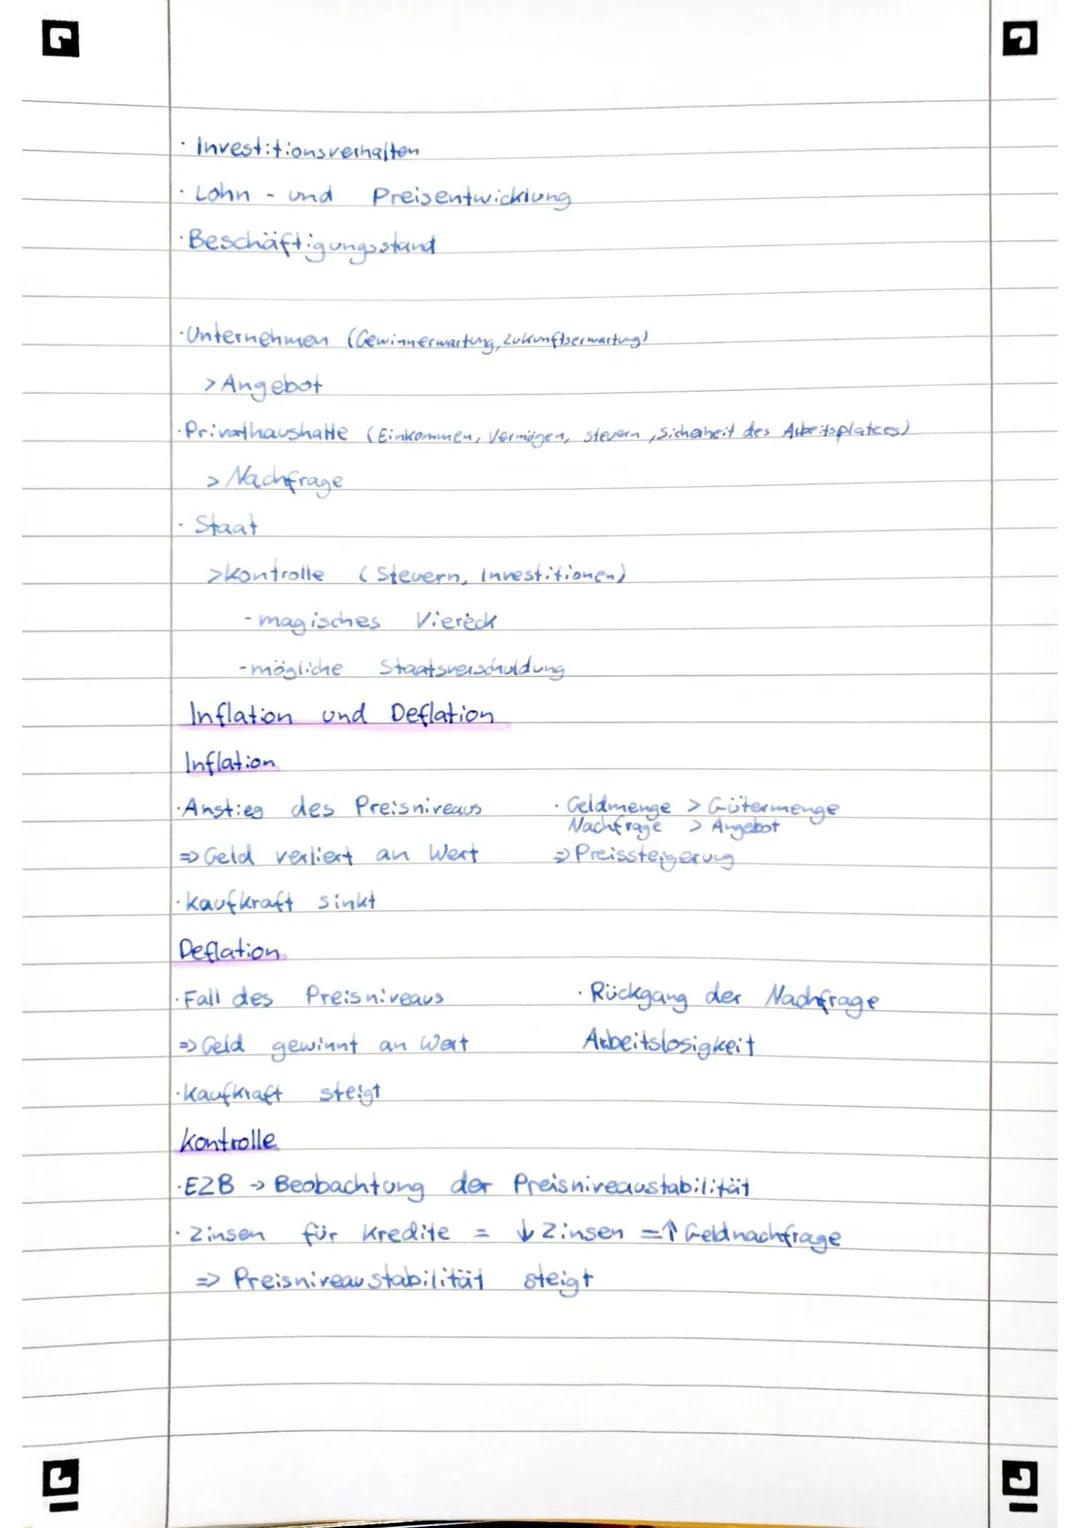 · Investitionsverhalten
· Lohn - und Preisentwicklung
· Beschäftigungsstand
· Unternehmen (Gewinnerwartung, Zukunftserwartung)
> Angebot
· Privathaushalte (Einkommen, Vermögen, Steuern, Sicherheit des Arbeitsplatzes)
> Nachfrage
· Staat
> Kontrolle (Steuern, Investitionen)
- magisches Viereck
- mögliche Staatsverschuldung
Inflation und Deflation
Inflation
· Anstieg des Preisniveaus
=> Geld verliert an Wert
· Kaufkraft sinkt
· Geldmenge > Gütermenge
Nachfrage > Angebot
=> Preissteigerung
Deflation
· Fall des Preisniveaus
=> Geld gewinnt an Wert
· Kaufkraft steigt
· Rückgang der Nachfrage
Arbeitslosigkeit
Kontrolle
· EZB -> Beobachtung der Preisniveaustabilität
· Zinsen für Kredite = ↓ Zinsen = ↑ Geldnachfrage
=> Preisniveaustabilität steigt